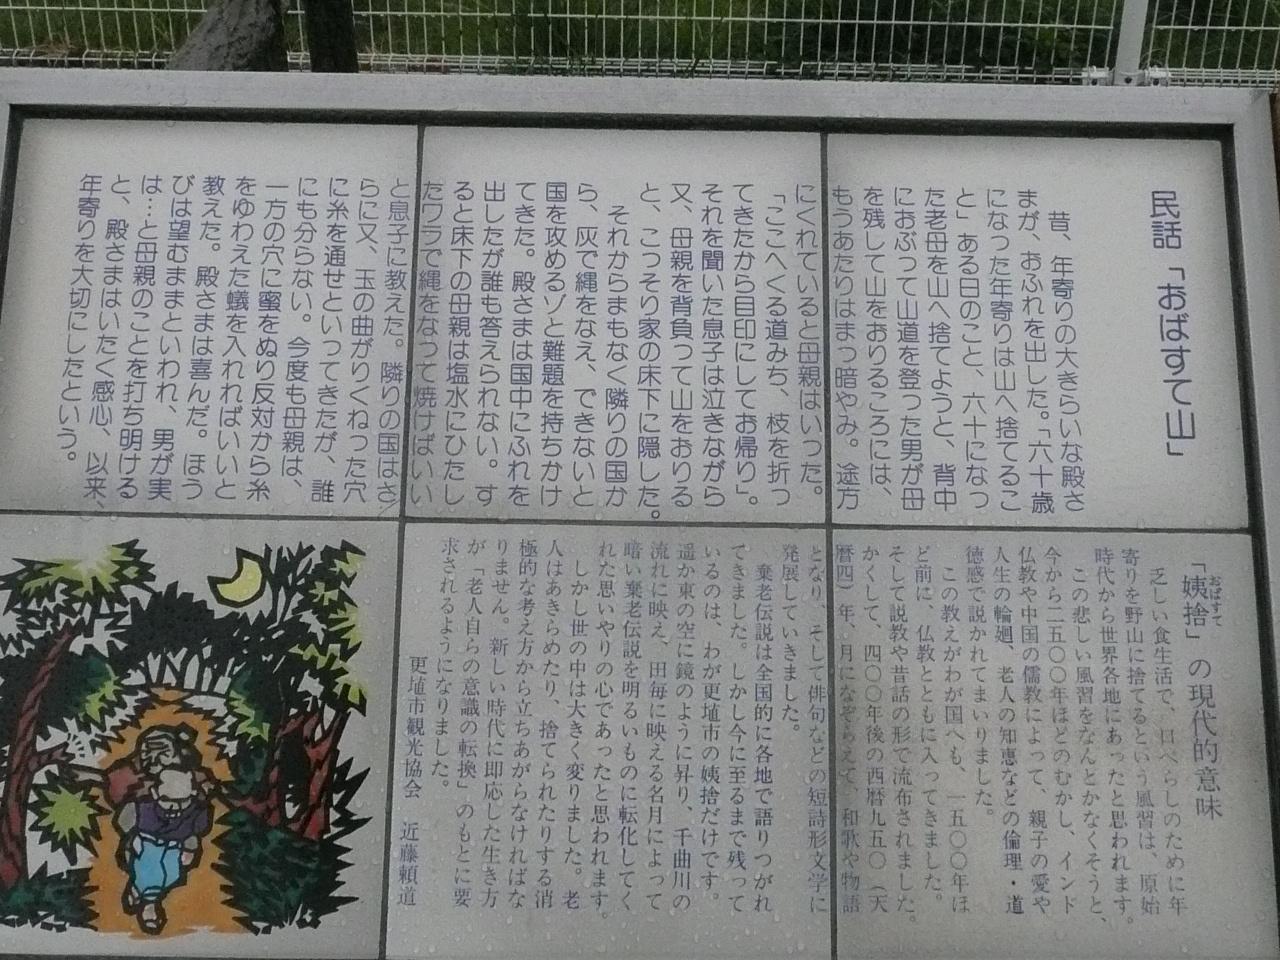 民話「おばすて山」
昔、年寄りの大きらいな殿さ
まが、おふれを出した。「六十歳
になった年寄りは山へ捨てるこ
と」ある日のこと、六十になっ
た老母を山へ捨てようと、背中
におぶって山道を登った男が母
を残して山をおりるころには、
もうあたりはまっ暗やみ。途方
にくれていると母親はいった。
「ここへくる道みち、枝を折っ
てきたから目印にしてお帰り」。
それを聞いた息子は泣きながら
又、母親を背負って山をおりる
と、こっそり家の床下に隠した。
それからまもなく隣りの国か
ら、灰で縄をなえ、できないと
国を攻めるゾと難題を持ちかけ
てきた。殿さまは国中にふれを
出したが誰も答えられない。す
ると床下の母親は塩水にひたし
たワラで縄をなって焼けばいい
と息子に教えた。隣りの国はさ
らに又、玉の曲がりくねった穴
に糸を通せといってきたが、誰
にも分らない。今度も母親は、
一方の穴に蜜をぬり反対から糸
をゆわえた蟻を入れればいいと
教えた。殿さまは喜んだ。ほう
びは望むままといわれ、男が実
は…と母親のことを打ち明ける
と、殿さまはいたく感心、以来、
年寄りを大切にしたという。
「姨捨」の現代的意味
おばすて
乏しい食生活で、口べらしのために年
寄りを野山に捨てるという風習は、原始
時代から世界各地にあったと思われます。
この悲しい風習をなんとかなくそうと、
今から二五〇〇年ほどのむかし、インド
仏教や中国の儒教によって、親子の愛や
人生の輪廻、老人の知恵などの倫理・道
徳感で説かれてまいりました。
この教えがわが国へも、一五〇〇年ほ
ど前に、仏教とともに入ってきました。
そして説教や昔話の形で流布されました。
かくして、四〇〇年後の西暦九五〇（天
暦四）年、月になぞらえて、和歌や物語
となり、そして俳句などの短詩形文学に
発展していきました。
棄老伝説は全国的に各地で語りつがれ
てきました。しかし今に至るまで残って
いるのは、わが更埴市の姨捨だけです。
遥か東の空に鏡のように昇り、千曲川の
流れに映え、田毎に映える名月によって
暗い棄老伝説を明るいものに転化してく
れた思いやりの心であったと思われます。
しかし世の中は大きく変りました。老
人はあきらめたり、捨てられたりする消
極的な考え方から立ちあがらなければな
りません。新しい時代に即応した生き方
が「老人自らの意識の転換」のもとに要
求されるようになりました。
更埴市観光協会 近藤頼道